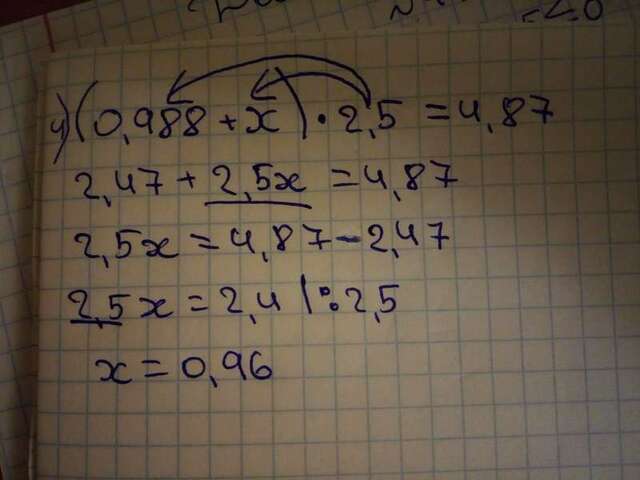 4) (0,988 + x) • 2,5 = 4,87
2,47 + 2,5x = 4,87
2,5x = 4,87 - 2,47
2,5x = 2,4 | : 2,5
x = 0,96